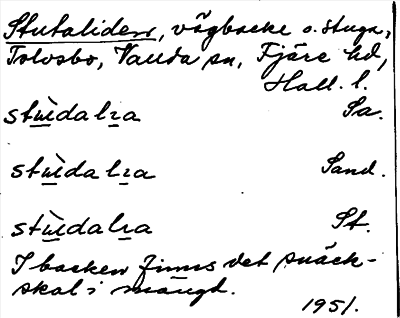 Stutaliden, vägbacke o. stuga,
Torsbo, Vanda sn, Fjäre hd,
Hall. l.
stùdalıa Sa.
stùdalıa Sand.
stùdalıa St.
I backen finns det snäck-
skal i mängd.
1951.